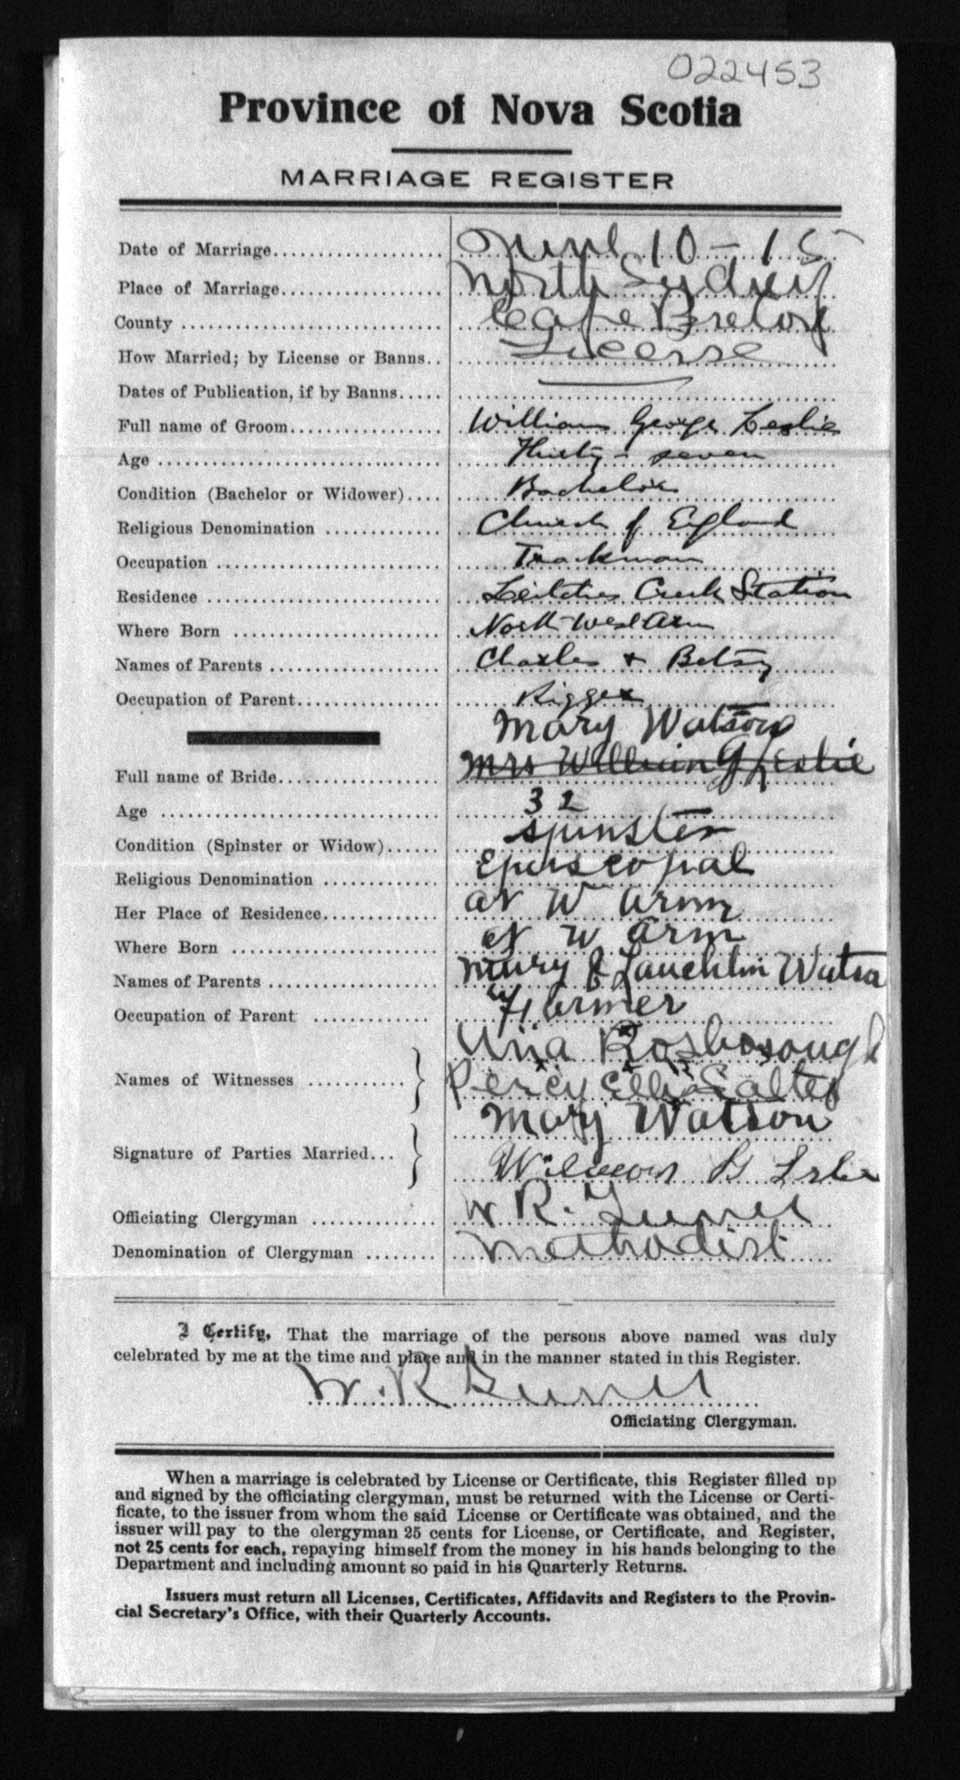 022453
Province of Nova Scotia
MARRIAGE REGISTER
Date of Marriage.................... June 10 - 15
Place of Marriage................... North Sydney
County ............................. Cape Breton
How Married; by License or Banns.. License
Dates of Publication, if by Banns.....
Full name of Groom.................. William George Leslie
Age ................................ Thirty-seven
Condition (Bachelor or Widower).... Bachelor
Religious Denomination ............. Church of England
Occupation ......................... Trackman
Residence .......................... Leitches Creek Station
Where Born ......................... North West Arm
Names of Parents ................... Charles + Betsy
Occupation of Parent................ Rigger
Mary Watson
Full name of Bride.................. Mrs William G Leslie
Age ................................ 32
Condition (Spinster or Widow)...... spinster
Religious Denomination ............. Episcopal
Her Place of Residence.............. W Arm
Where Born ......................... W Arm
Names of Parents ................... Mary & Lauchlin Watson
Occupation of Parent ............. Farmer
Rosborough
Names of Witnesses ........... Percy Ellis Salter
Mary Watson
Signature of Parties Married...
G
Officiating Clergyman .............. W R.
Denomination of Clergyman ........ Methodist
I Certify, That the marriage of the persons above named was duly
celebrated by me at the time and place and in the manner stated in this Register.
W. R
Officiating Clergyman.
When a marriage is celebrated by License or Certificate, this Register filled up
and signed by the officiating clergyman, must be returned with the License or Certi-
ficate, to the issuer from whom the said License or Certificate was obtained, and the
issuer will pay to the clergyman 25 cents for License, or Certificate, and Register,
not 25 cents for each, repaying himself from the money in his hands belonging to the
Department and including amount so paid in his Quarterly Returns.
Issuers must return all Licenses, Certificates, Affidavits and Registers to the Provin-
cial Secretary's Office, with their Quarterly Accounts.